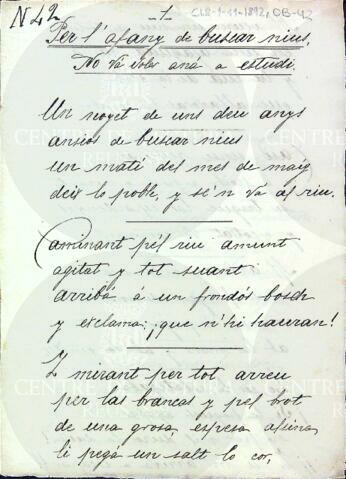 N 42
-1-
CLR-1-11-1892, OB-42
Per l'afany de buscar nius,
No vá voler aná a estudi
Un noyet de uns deu anys
ansiós de buscar nius
un matí del mes de maig
deix lo poble, y se'n va al riu.
Caminant pél riu amunt
agitat y tot suant
arribá á un frondós bosch
y exclama: ¡que n'hi hauran!
Y mirant per tot arreu
per las brancas y pel brot
de una grosa, espesa alsina,
li pegá un salt lo cor,